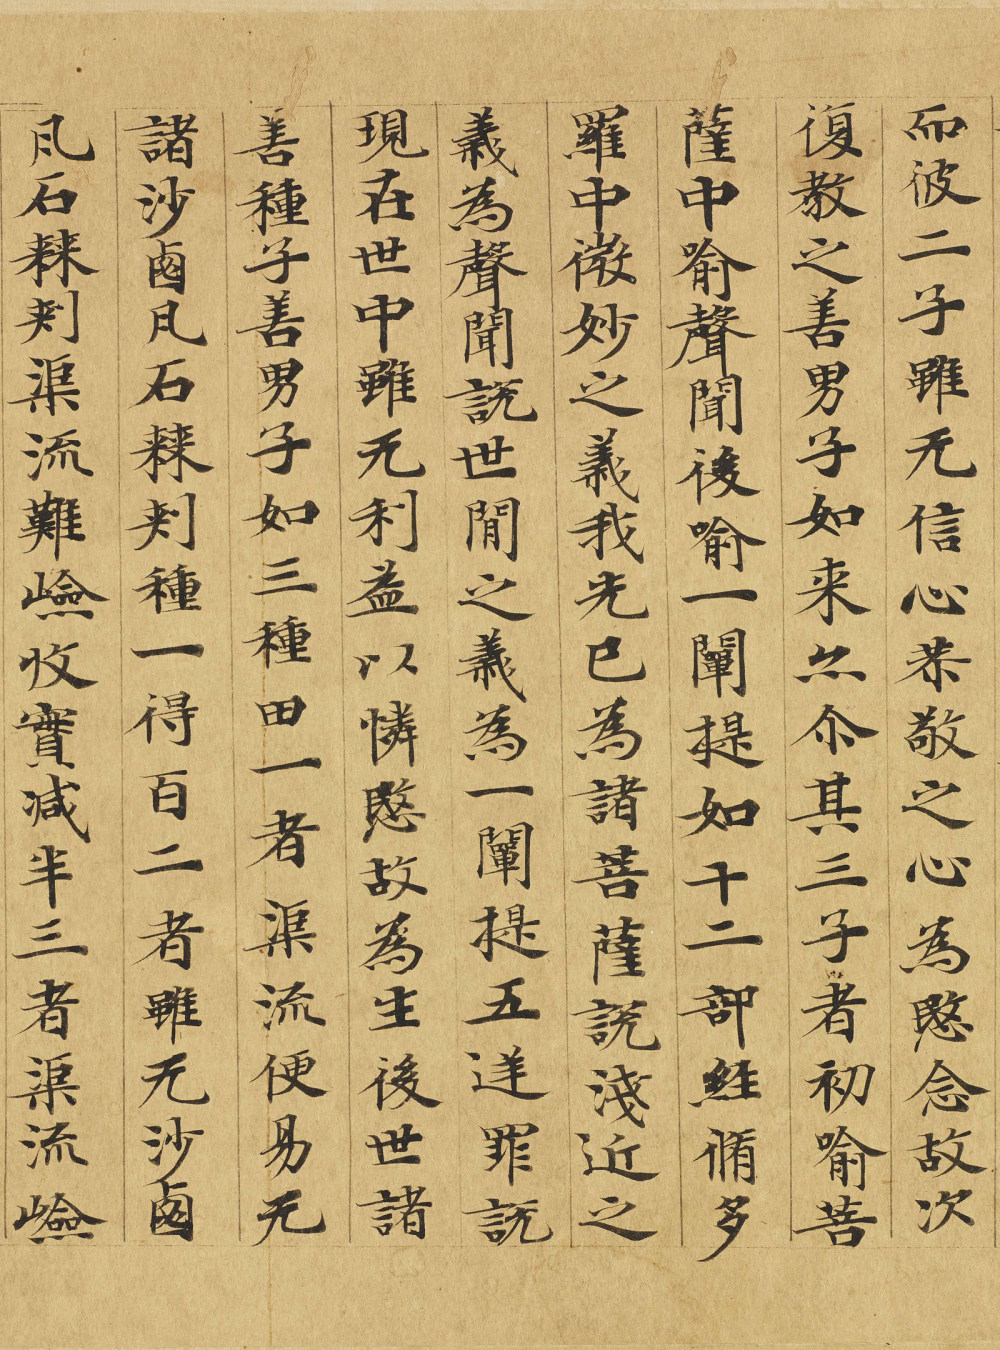 而彼二子雖无信心恭敬之心為愍念故次
復教之善男子如来亦尒其三子者初喻菩
薩中喻聲聞後喻一闡提如十二部經脩多
羅中微妙之義我先已為諸菩薩說淺近之
義為聲聞說世閒之義為一闡提五逆罪說
現在世中雖无利益以憐愍故為生後世諸
善種子善男子如三種田一者渠流便易无
諸沙鹵凡石棘刾種一得百二者雖无沙鹵
凡石棘刾渠流難嶮收實減半三者渠流嶮